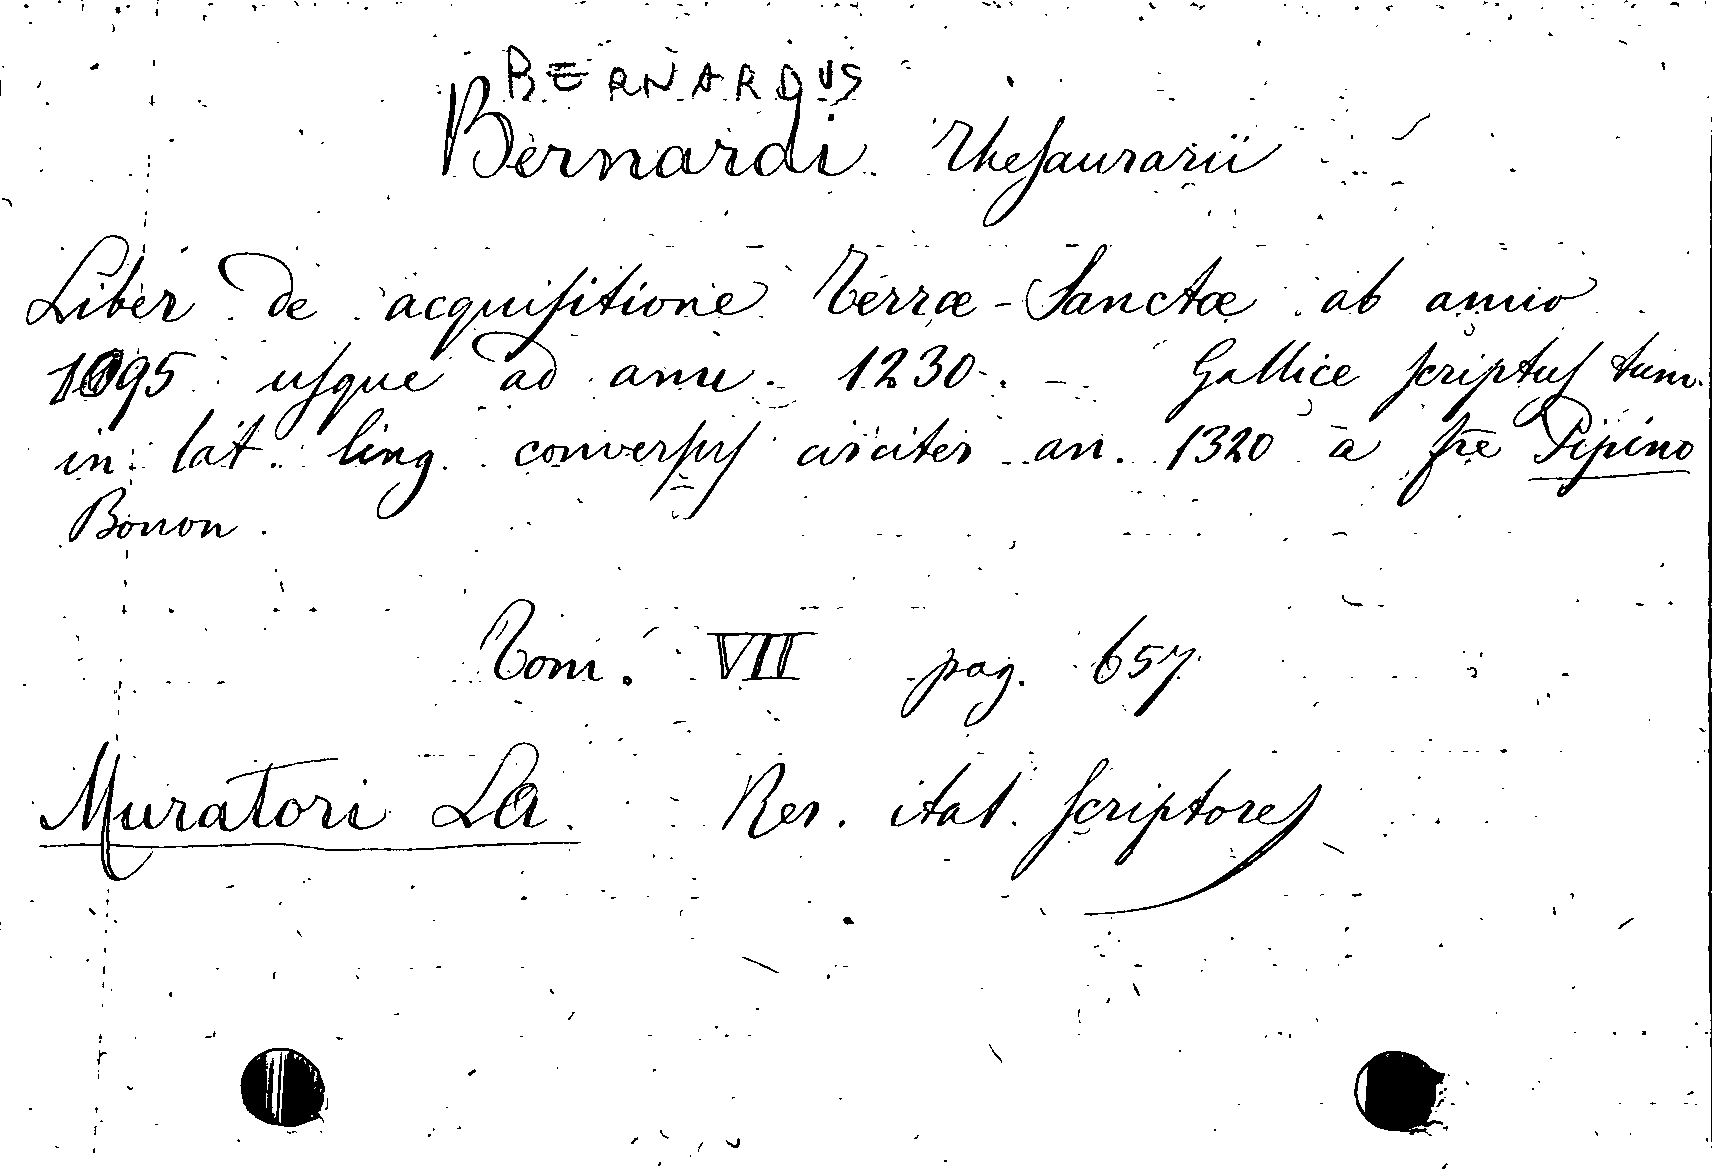 BERNARDUS
Bernardi Theſaurarii
Liber de acquiſitione Terræ-Sanctæ ab anno
1095 uſque ad ann. 1230. - Gallice ſcriptuſ tum.
in lat. ling. converſuſ circiter an. 1320 a fr̄e Pipino
Bonon.
Tom. VII pag. 657
Muratori LA. Rer. ital. ſcriptoreſ